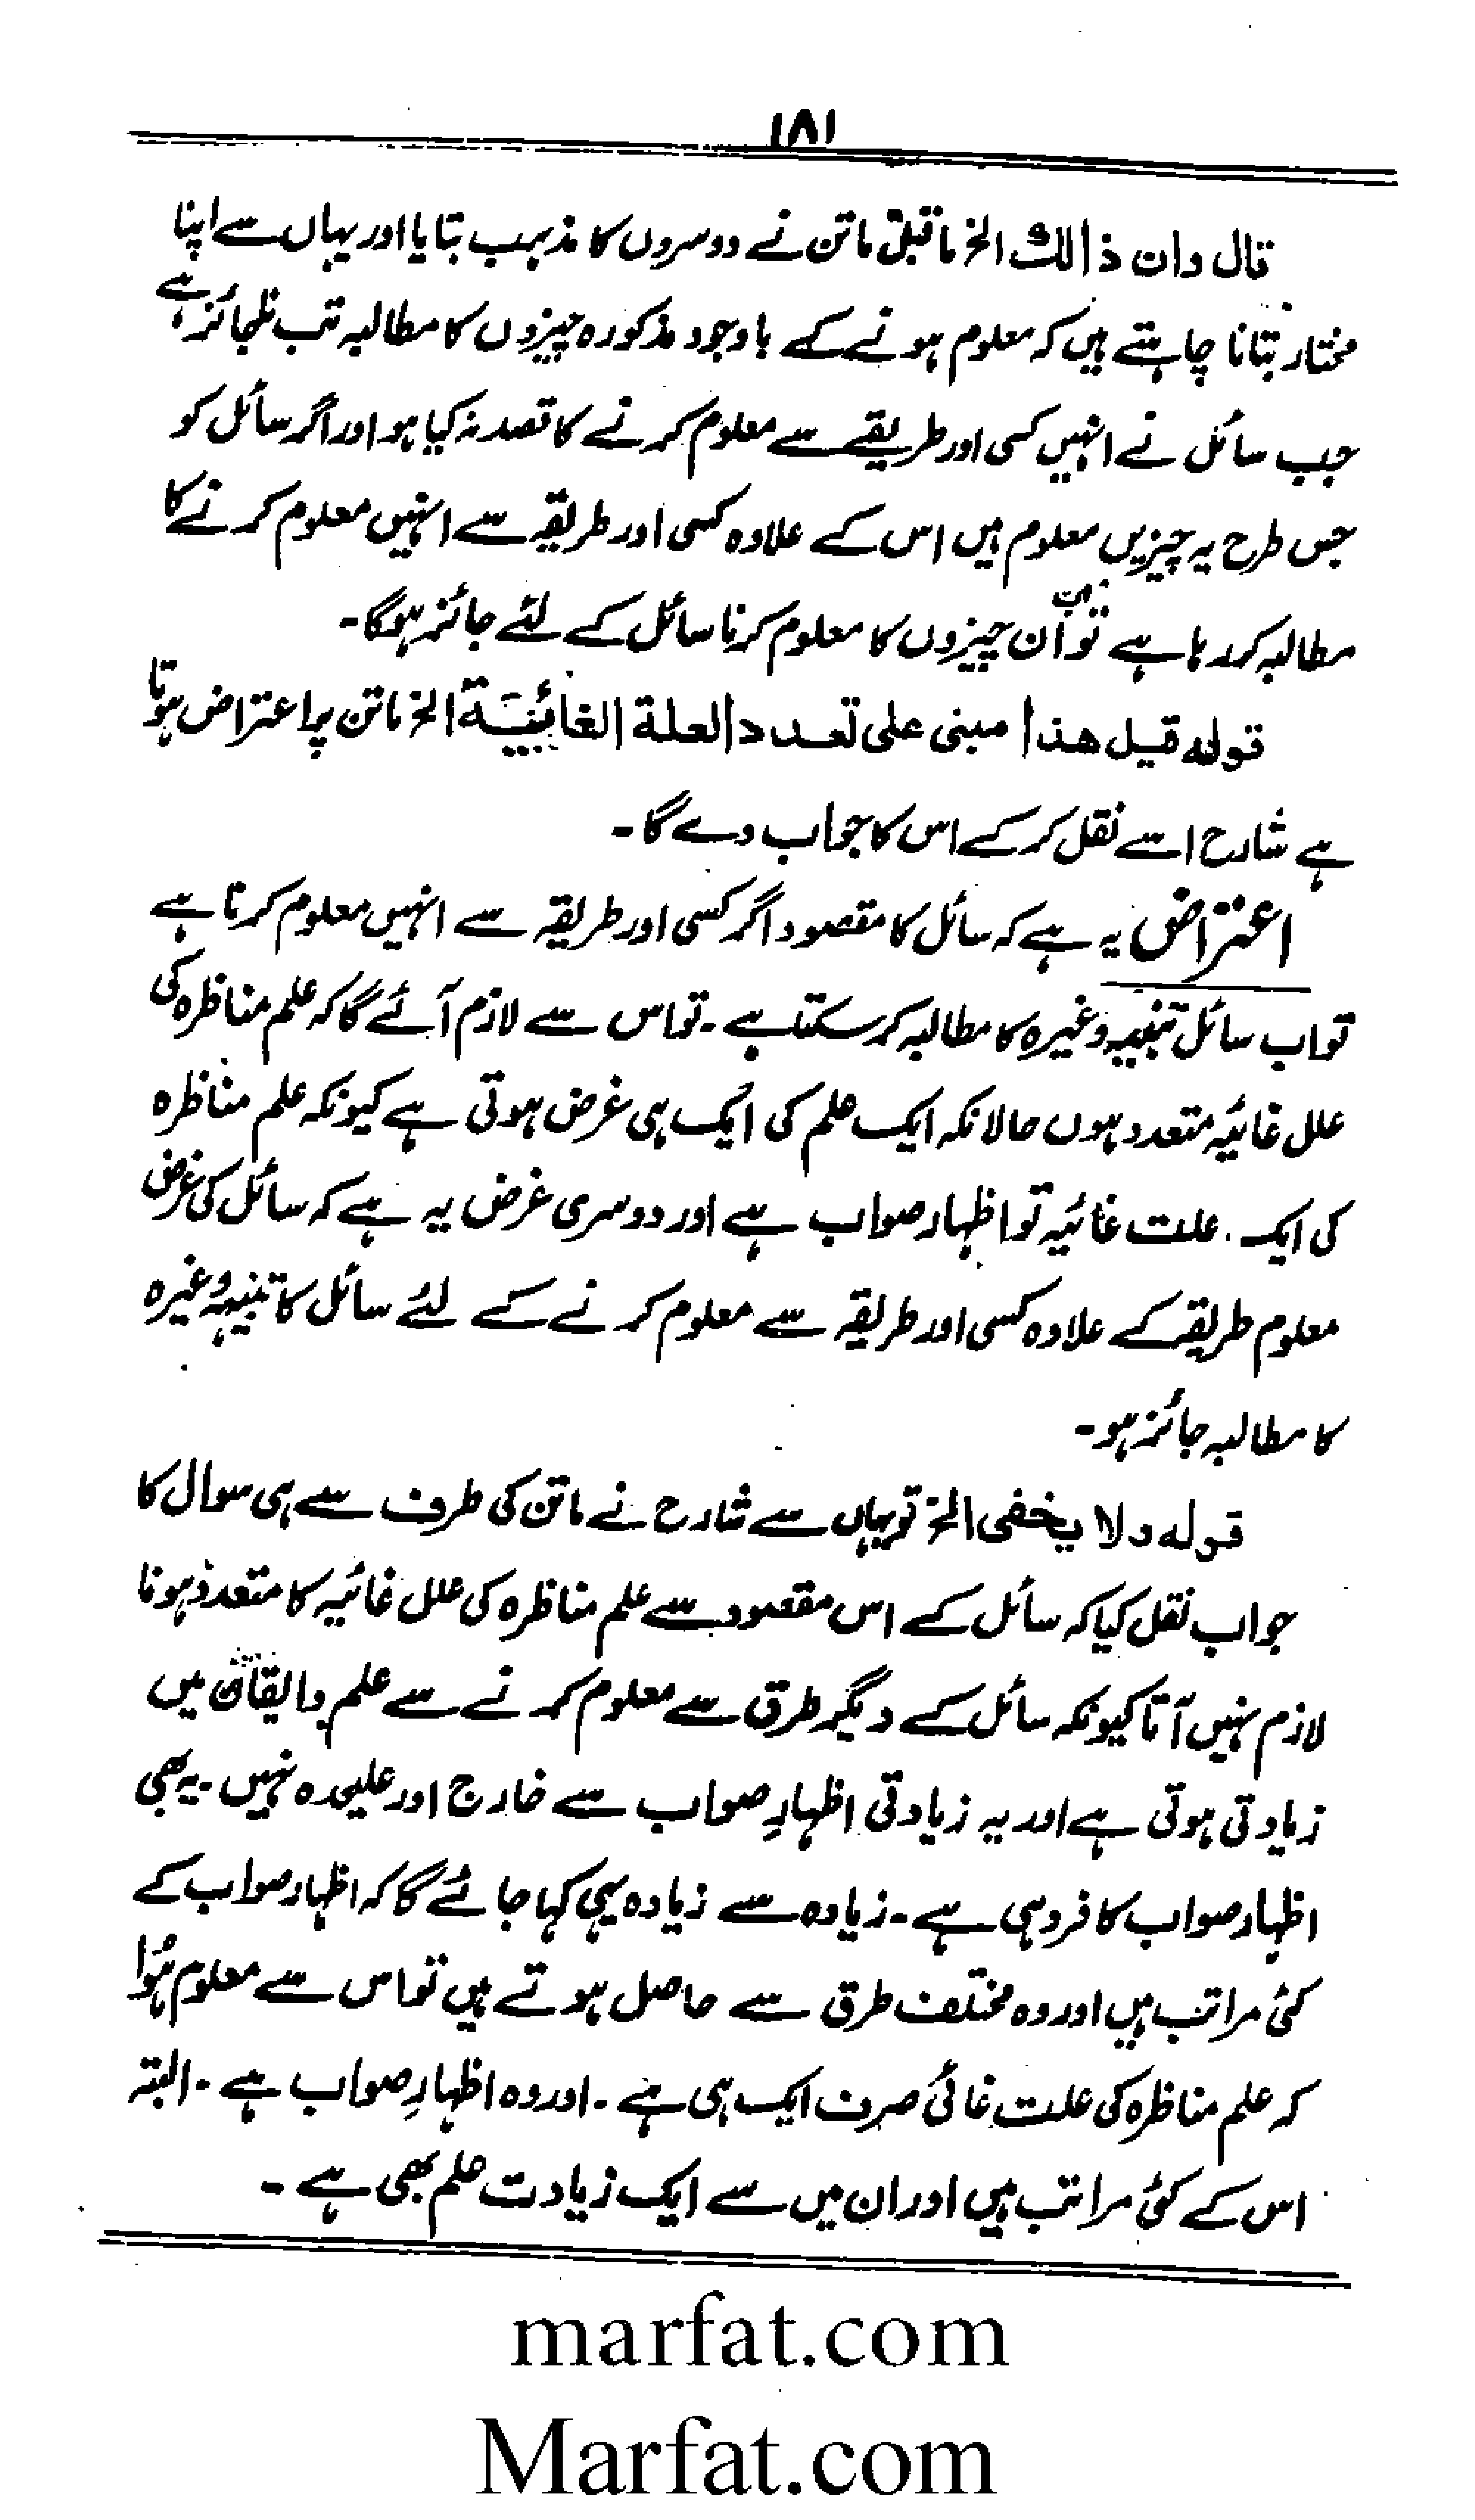 ۱۸۱
قال وان ذالك الخ ماقبل ماتن نے دوسروں کا مذہب بتایا اور یہاں سے اپنا
مختار بتانا چاہتے ہیں کہ معلوم ہونے کے باوجود مذکورہ چیزوں کا مطالبہ تب جائز ہے
جب سائل نے انہیں کسی اور طریقے سے معلوم کرنے کا قصد نہ کیا ہو اور اگر سائل کو
جس طرح یہ چیزیں معلوم ہیں اس کے علاوہ کسی اور طریقہ سے انہیں معلوم کرنے کا
مطالبہ کر رہا ہے تو اب ان چیزوں کا معلوم کرنا سائل کے لئے جائز ہوگا۔
قوله قيل هذا مبنى على تعدد العلة الغائية الخ ماتن پر اعتراض ہوتا
ہے شارح اسے نقل کر کے اس کا جواب دے گا۔
اعتراض یہ ہے کہ سائل کا مقصود اگر کسی اور طریقہ سے انہیں معلوم کرنا ہے
تو اب سائل تنبیہ وغیرہ کا مطالبہ کر سکتا ہے۔ تو اس سے لازم آئے گا کہ علم مناظرہ کی
علل غائیہ متعدد ہوں حالانکہ ایک علم کی ایک ہی غرض ہوتی ہے کیونکہ علم مناظرہ
کی ایک علت غائیہ تو اظہار صواب ہے اور دوسری غرض یہ ہے کہ سائل کی غرض
معلوم طریقہ کے علاوہ کسی اور طریقہ سے معلوم کرنے کے لئے سائل کا تنبیہ وغیرہ
کا مطالبہ جائز ہو۔
قوله ولا يخفى الخ تو یہاں سے شارح نے ماتن کی طرف سے ہی سوال کا
جواب نقل کیا کہ سائل کے اس مقصود سے علم مناظرہ کی علل غائیہ کا متعدد ہونا
لازم نہیں آتا کیونکہ سائل کے دیگر طرق سے معلوم کرنے سے علم وایقان میں
زیادتی ہوتی ہے اور یہ زیادتی اظہارِ صواب سے خارج اور علیحدہ نہیں۔ یہ بھی
اظہار صواب کا فرد ہی ہے۔ زیادہ سے زیادہ یہی کہا جائے گا کہ اظہار صواب کے
کئی مراتب ہیں اور وہ مختلف طرق سے حاصل ہوتے ہیں تو اس سے معلوم ہُوا
کہ علم مناظرہ کی علت غائی صرف ایک ہی ہے۔ اور وہ اظہارِ صواب ہے۔ البتہ
اس کے کئی مراتب ہیں اور ان میں سے ایک زیادت علم بھی ہے۔
marfat.com
Marfat.com